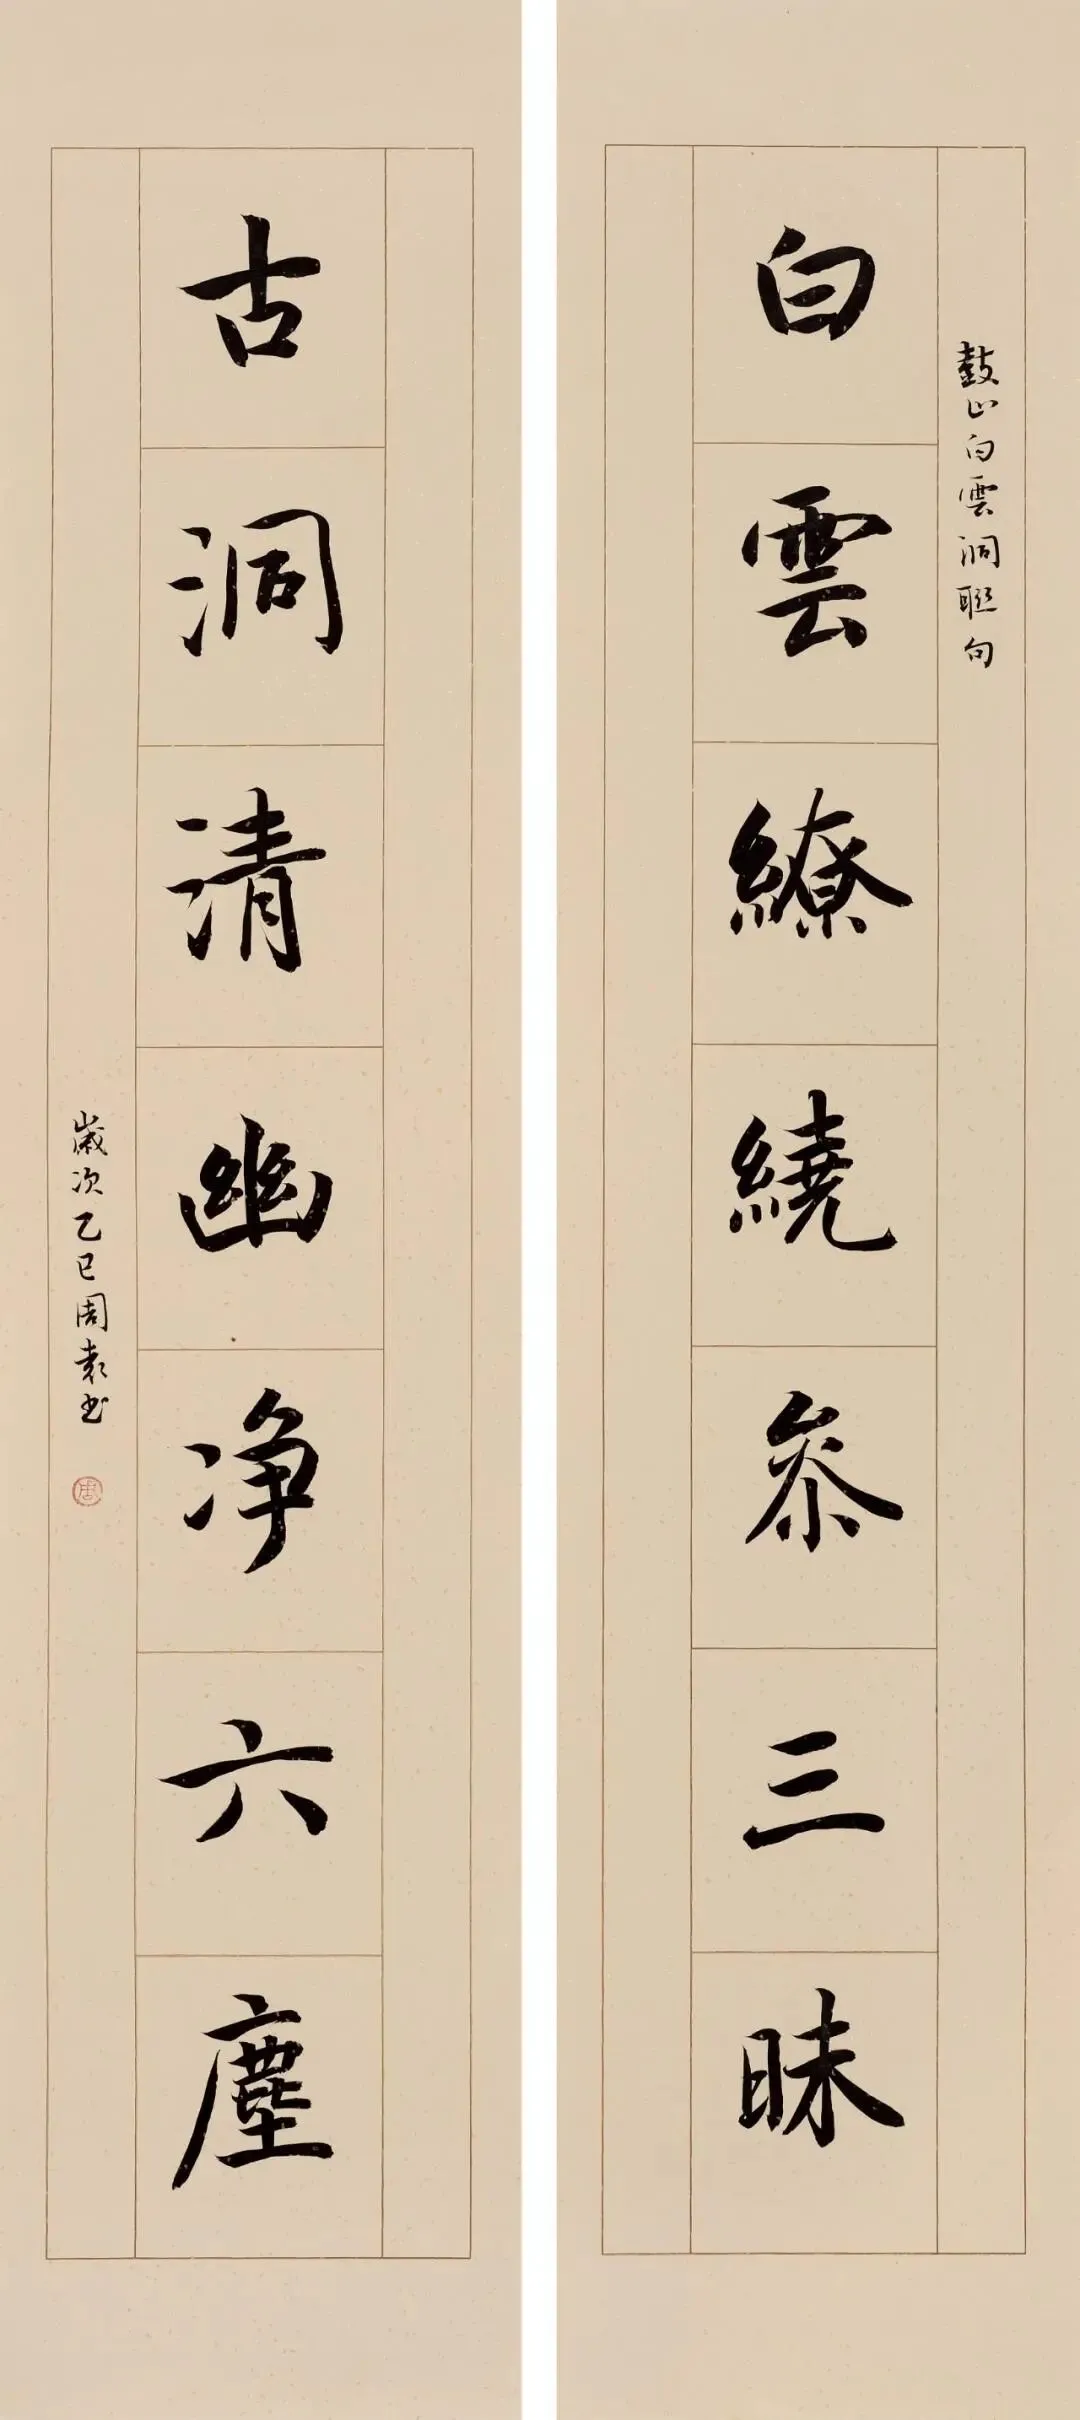 鼓山白雲洞聯句
白雲繚繞參三昧
古洞清幽净六塵
歲次乙巳周袁书
周